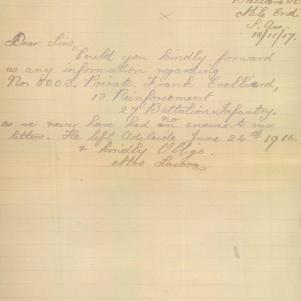 Mile End
S. Aus.
10/11/17.
Dear Sirs,
Could you kindly forward
us any information regarding
No. 8003. Private Frank
13 Reinforcement
27 Battalion Infantry.
as we never have had no answers to our
letters. He left Adelaide June 24th 1916.
& kindly Oblige.
Mrs